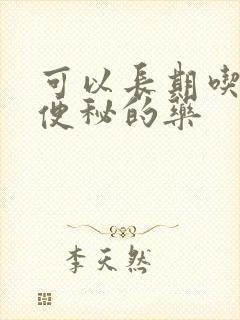 可以長期喫
便秘的藥
李天然